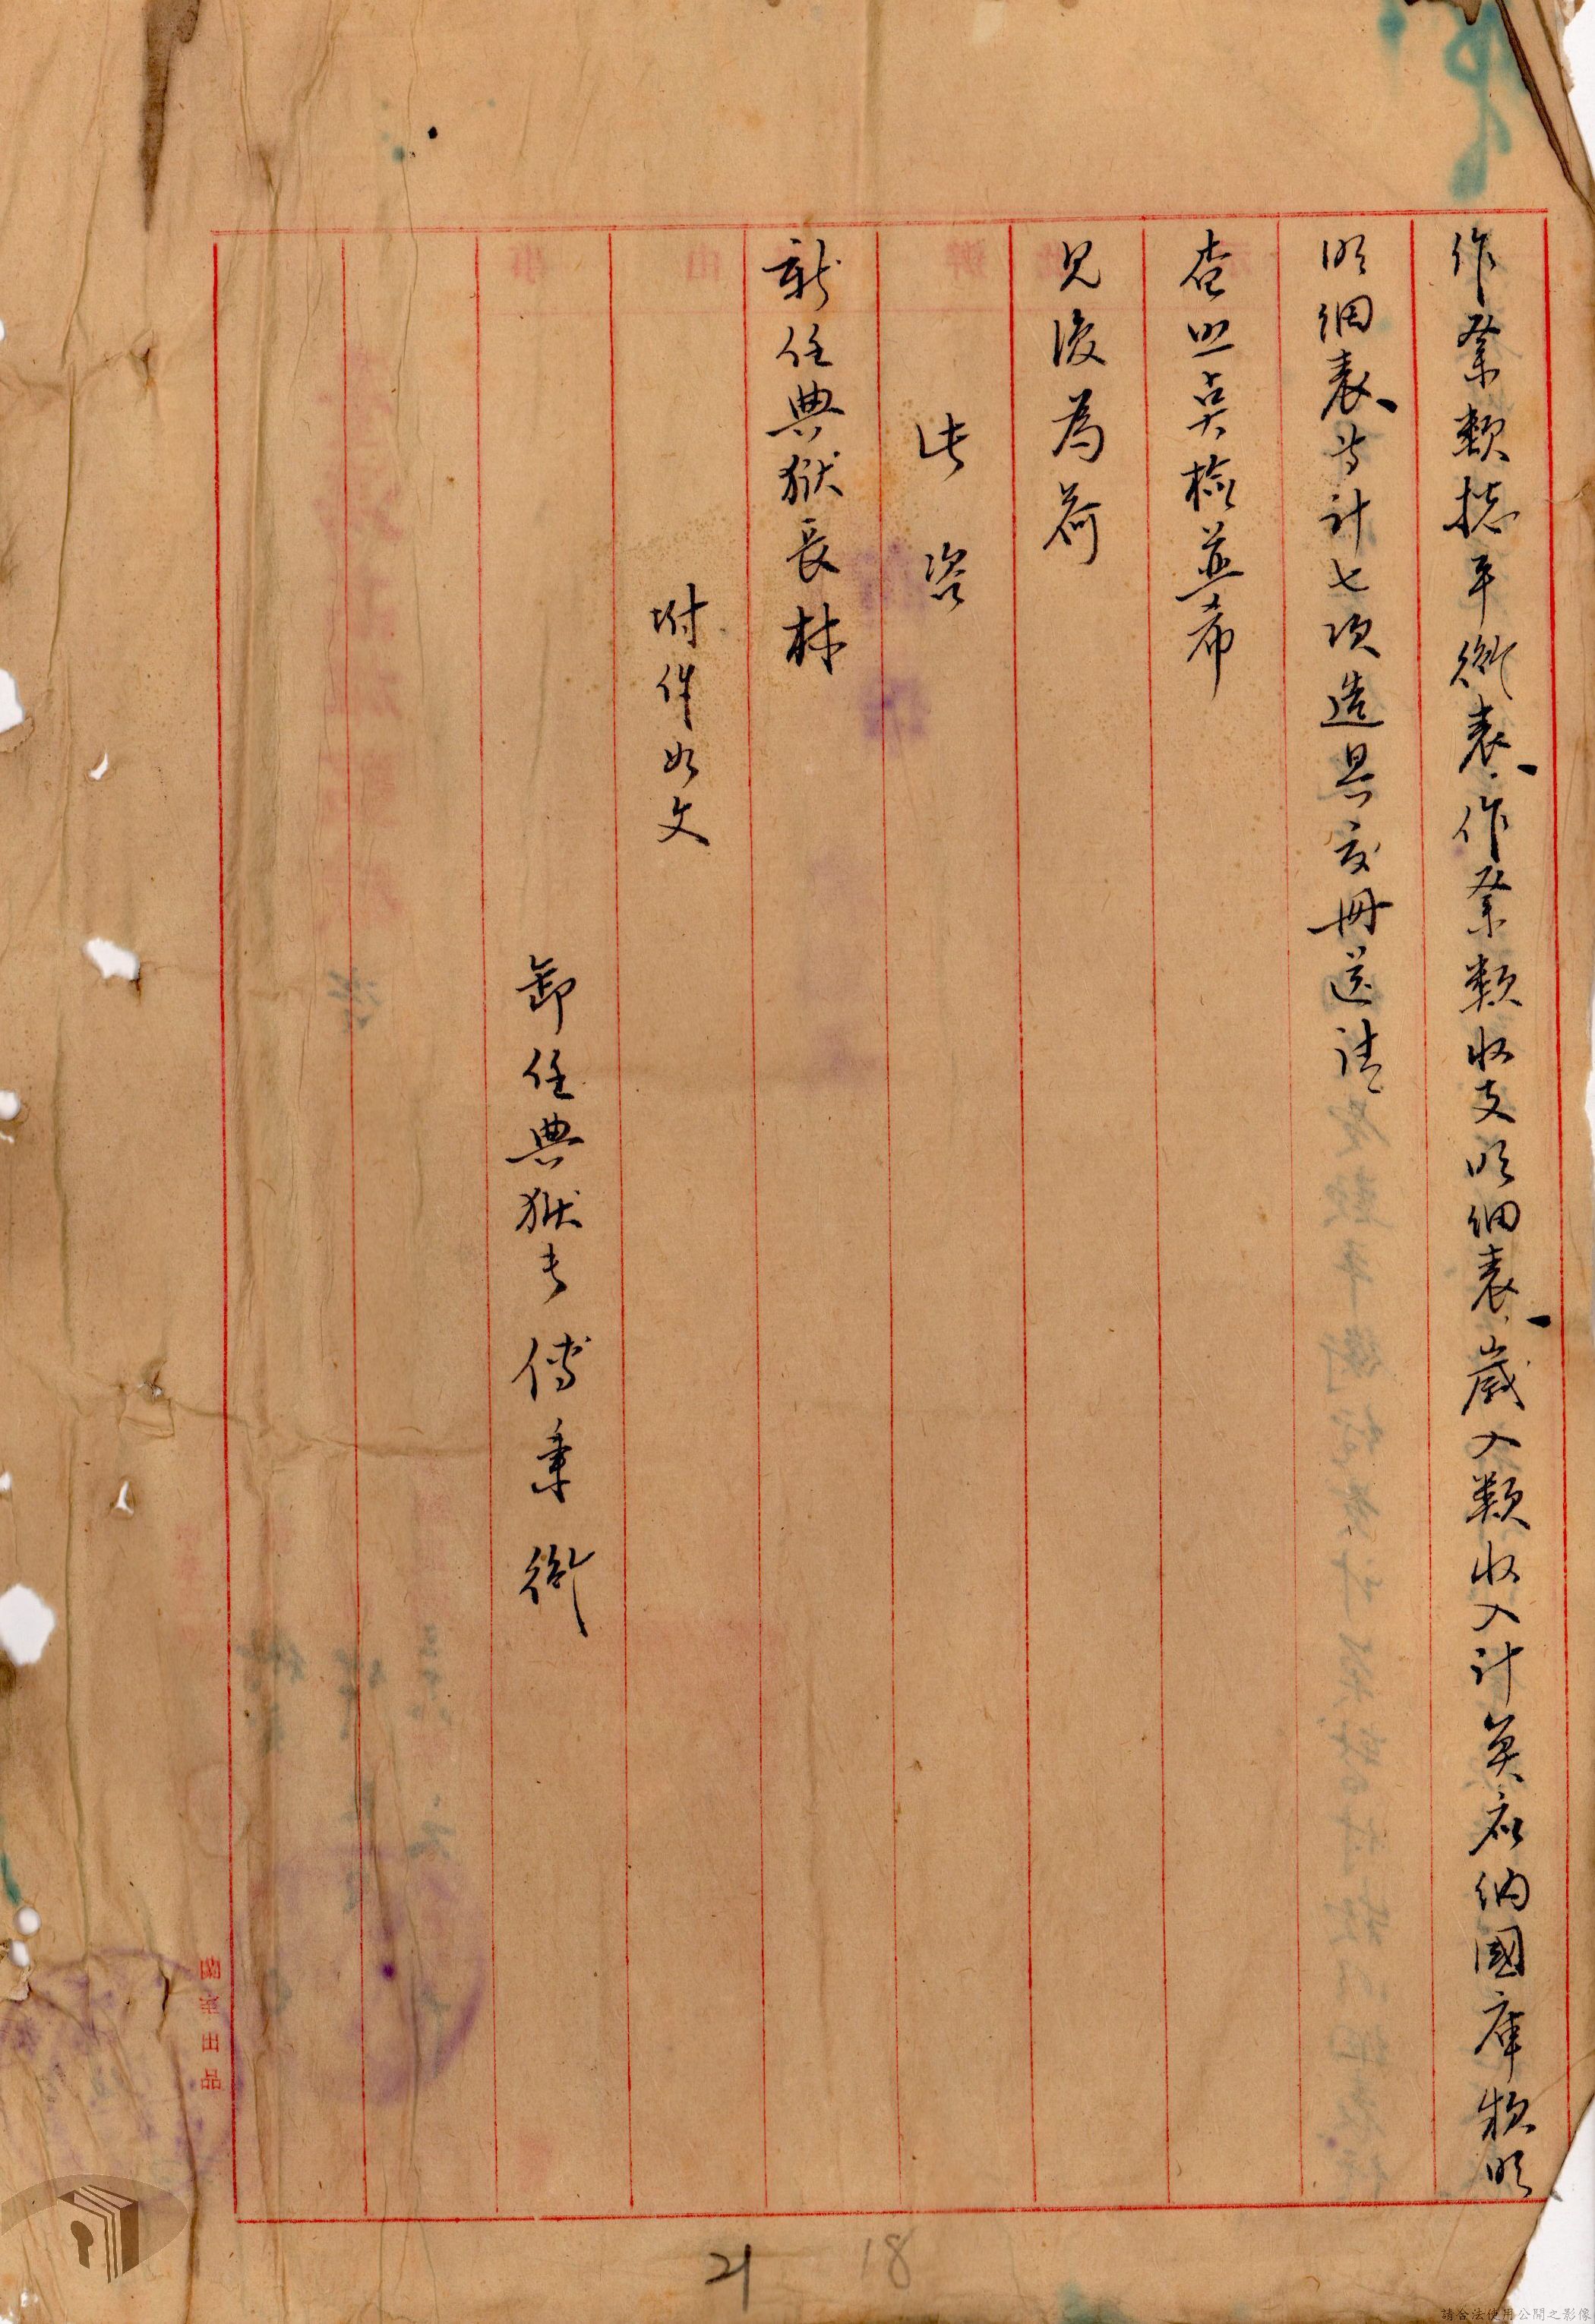 作業類總平衡表、作業類收支明細表、歲入類收入計算應納國庫款明
明細表、等計七項造具交冊送請
查照点檢並希
見復為荷
此咨
新任典獄長林
附件如文
卸任典獄長傅秉衡
21 18
請合法使用公開之影像